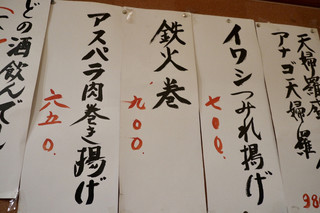 天婦羅
アナゴ天婦羅
98
イワシつみれ揚げ
七〇〇.
鉄火巻
九〇〇.
アスパラ肉巻き揚げ
六五〇.
どの酒飲んでし